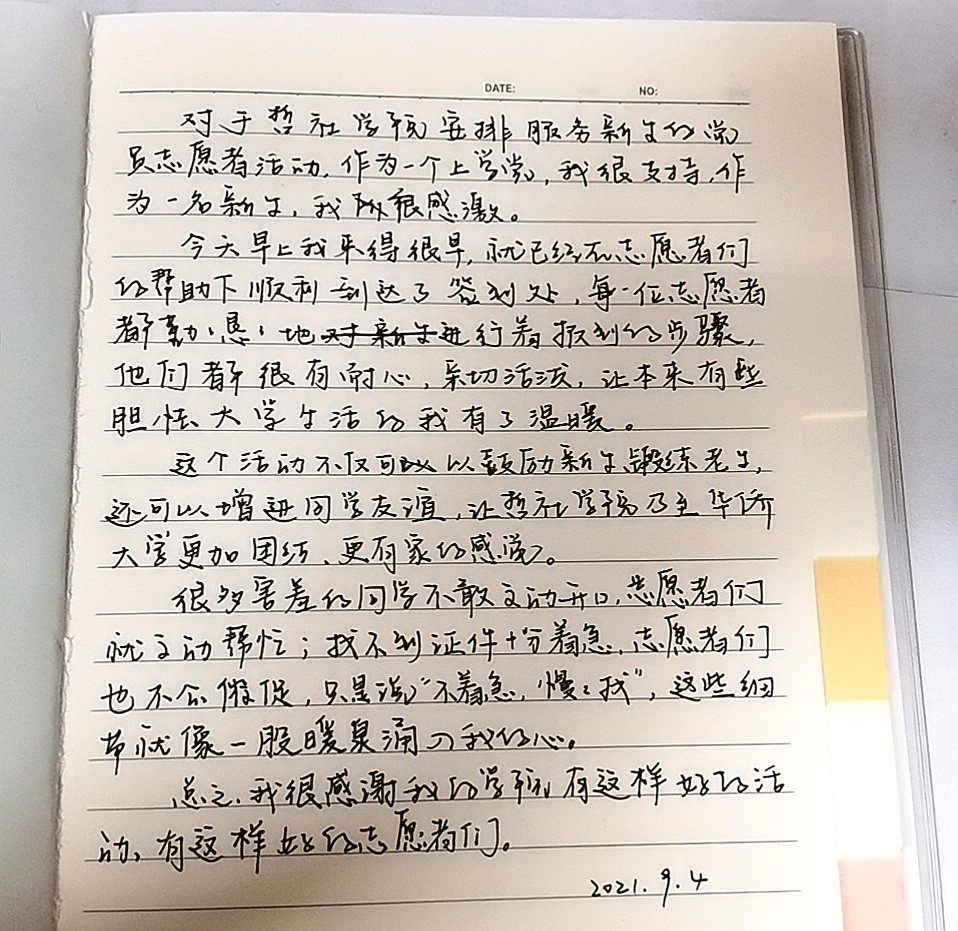 DATE: NO:
对于哲社学院安排服务新生的党
员志愿者活动,作为一个上学党,我很支持,作
为一名新生,我很感激。
今天早上我来得很早,就已经在志愿者们
的帮助下顺利到达了签到处,每一位志愿者
都勤勤恳恳地对新生进行着报到的步骤,
他们都很有耐心,亲切活泼,让本来有些
胆怯大学生活的我有了温暖。
这个活动不仅可以以鼓励新生,锻练老生,
还可以增进同学友谊,让哲社学院乃至华侨
大学更加团结、更有家的感觉。
很多害羞的同学不敢主动开口,志愿者们
就主动帮忙;找不到证件十分着急,志愿者们
也不会催促,只是说"不着急,慢慢找",这些细
节就像一股暖泉涌入我的心。
总之,我很感谢我的学院,有这样好的活
动、有这样好的志愿者们。
2021.9.4